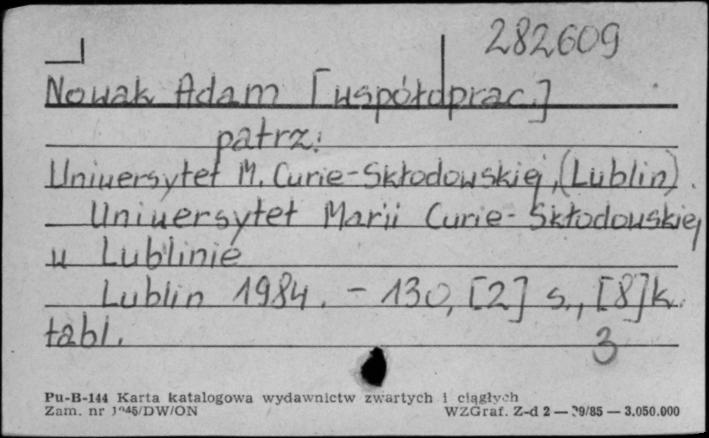 282609
Nowak Adam [współprac.]
patrz:
Uniwersytet M. Curie-Skłodowskiej, (Lublin).
Uniwersytet Marii Curie-Skłodowskiej
w Lublinie
Lublin 1984. – 130, [2] s., [8] k.
tabl.
3
Pu-B-144 Karta katalogowa wydawnictw zwartych i ciągłych
Zam. nr /DW/ON WZGraf. Z-d 2 — 9/85 — 3.050.000